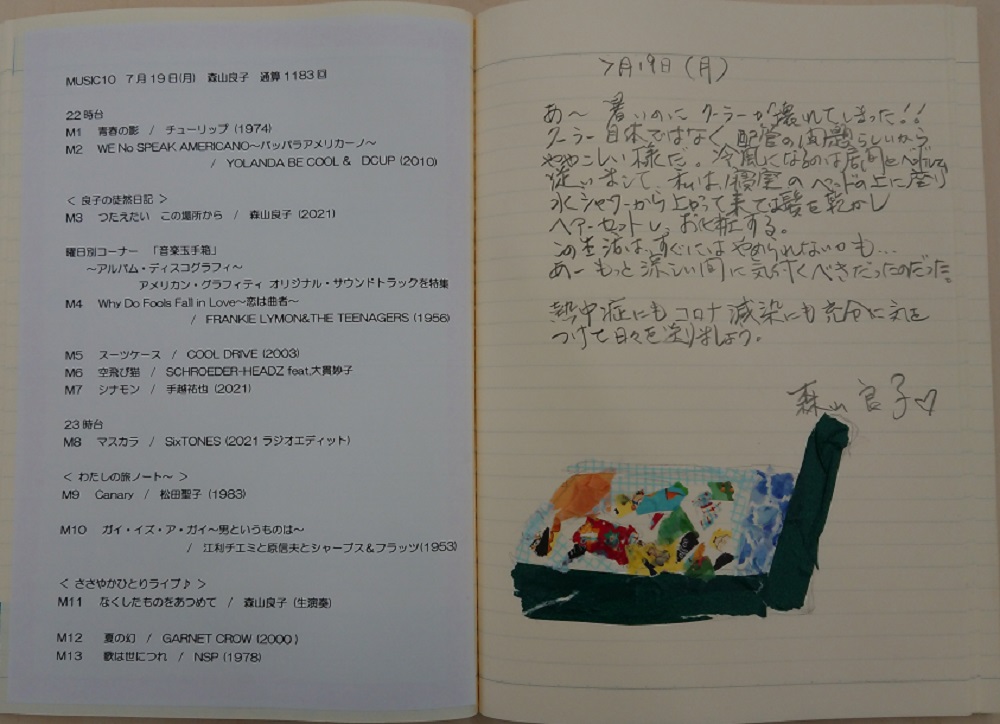 MUSIC10 7月19日(月) 森山良子 通算1183回
22時台
M1 青春の影 / チューリップ (1974)
M2 WE No SPEAK AMERICANO～パッパラアメリカーノ～
/ YOLANDA BE COOL & DCUP (2010)
< 良子の徒然日記 >
M3 つたえたい この場所から / 森山良子 (2021)
曜日別コーナー 「音楽玉手箱」
～アルバム・ディスコグラフィ～
アメリカン・グラフィティ オリジナル・サウンドトラックを特集
M4 Why Do Fools Fall in Love～恋は曲者～
/ FRANKIE LYMON&THE TEENAGERS (1956)
M5 スーツケース / COOL DRIVE (2003)
M6 空飛び猫 / SCHROEDER-HEADZ feat.大貫妙子
M7 シナモン / 手越祐也 (2021)
23時台
M8 マスカラ / SixTONES (2021 ラジオエディット)
< わたしの旅ノート～ >
M9 Canary / 松田聖子 (1983)
M10 ガイ・イズ・ア・ガイ～男というものは～
/ 江利チエミと原信夫とシャープス&フラッツ(1953)
< ささやかひとりライブ♪ >
M11 なくしたものをあつめて / 森山良子 (生演奏)
M12 夏の幻 / GARNET CROW (2000)
M13 歌は世につれ / NSP (1978)
7月19日(月)
あ～ 暑いのに クーラーが壊れてしまった!!
クーラー自体ではなく 配管の問題らしいから
ややこしい様だ。冷風になるのは居間と
従いまして、私は寝室のベッドの上に座り
水シャワーから上がって来ては髪を乾かし
ヘアーセットし、お化粧する。
この生活は、すぐにはやめられない も…
あーもっと涼しい間に気付くべきだったのだった。
熱中症にもコロナ感染にも充分に気を
つけて日々を送りましょう。
森山良子♡